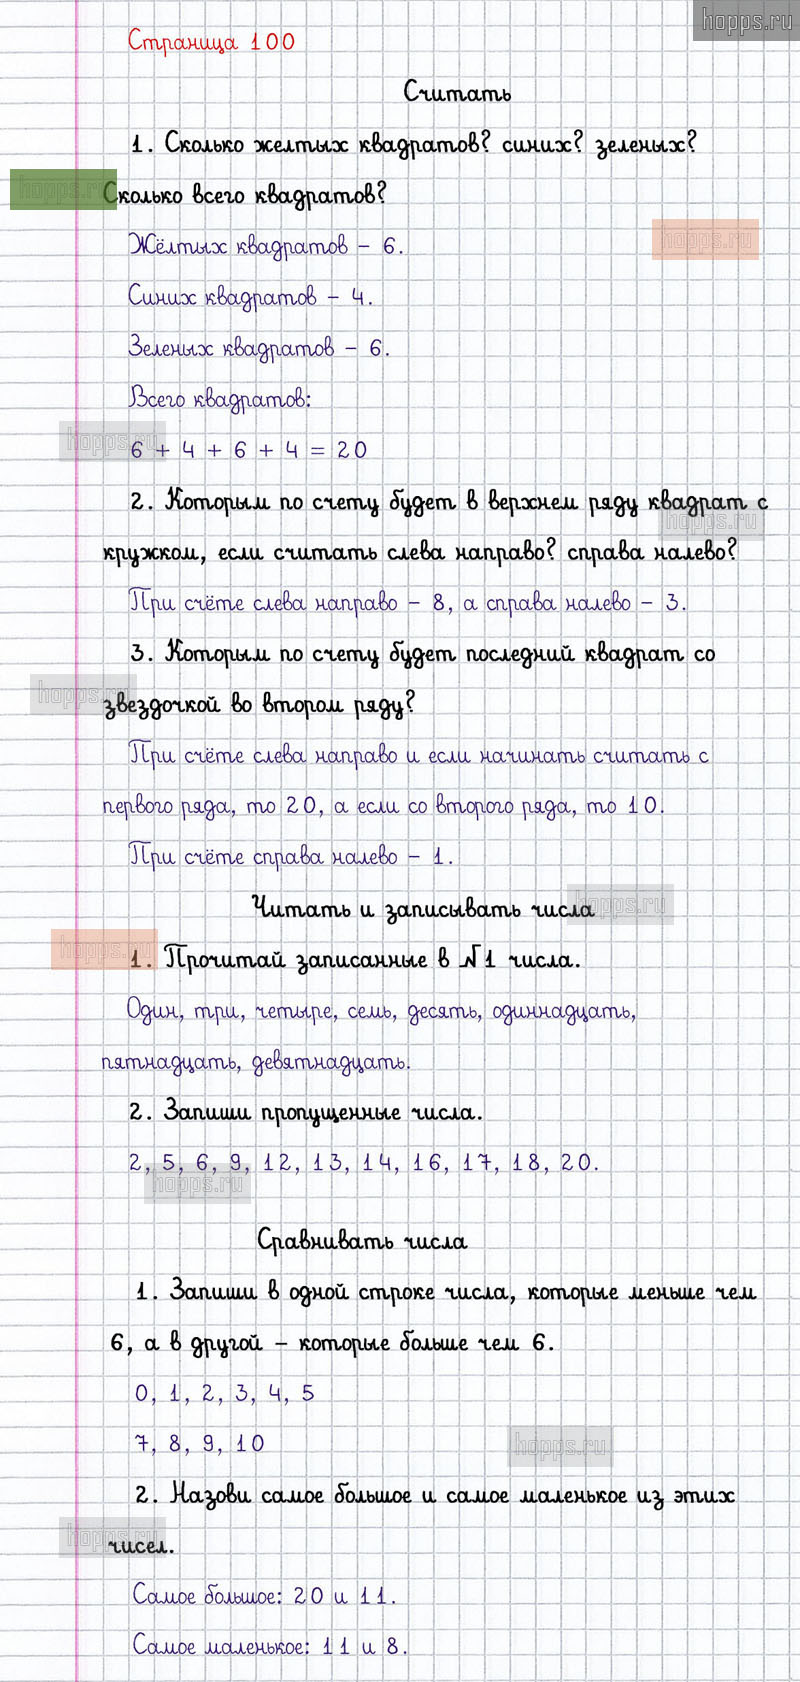 hopps.ru
Страница 100
Считать
1. Сколько желтых квадратов? синих? зеленых?
hopps.ru
Сколько всего квадратов?
Жёлтых квадратов – 6.
hopps.ru
Синих квадратов – 4.
Зеленых квадратов – 6.
Всего квадратов:
hopps.ru
6 + 4 + 6 + 4 = 20
2. Которым по счету будет в верхнем ряду квадрат с
hopps.ru
кружком, если считать слева направо? справа налево?
При счёте слева направо – 8, а справа налево – 3.
3. Которым по счету будет последний квадрат со
hopps.ru
звездочкой во втором ряду?
При счёте слева направо и если начинать считать с
первого ряда, то 20, а если со второго ряда, то 10.
При счёте справа налево – 1.
hopps.ru
Читать и записывать числа
hopps.ru
1. Прочитай записанные в №1 числа.
Один, три, четыре, семь, десять, одиннадцать,
пятнадцать, девятнадцать.
2. Запиши пропущенные числа.
2, 5, 6, 9, 12, 13, 14, 16, 17, 18, 20.
hopps.ru
Сравнивать числа
1. Запиши в одной строке числа, которые меньше чем
6, а в другой – которые больше чем 6.
0, 1, 2, 3, 4, 5
7, 8, 9, 10
hopps.ru
2. Назови самое большое и самое маленькое из этих
hopps.ru
чисел.
Самое большое: 20 и 11.
Самое маленькое: 11 и 8.